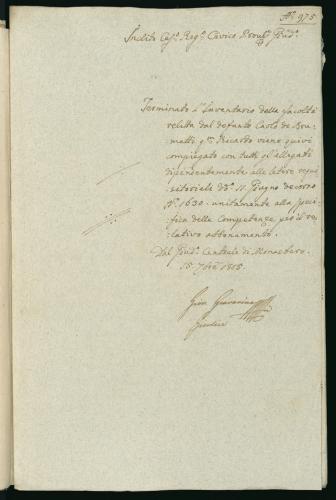 N.º 975
Inclito Ces.º Reg.º Civico Prov.º Giud.º
Terminato l'Inventario della facoltà
relitta dal defunto Carlo de Bru-
matti q.m Riccardo viene quivi
compiegato con tutti gl'allegati
dipendentemente alle lettere requi-
sitoriali dd.º 11. Giugno decorso
N.º 1630. unitamente alla speci-
fica delle Competenze per il re-
lativo attonamento.
Dal Giud.º Centrale di Monastero.
15. 7bre 1815.
Giudice